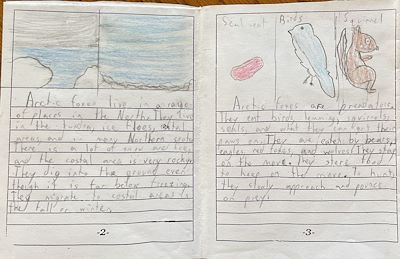 Arctic foxes live in a range
of places in the North. They live
in the tundra, ice floes, costal
areas and in many Northern
There is a lot of snow and ice
and the costal area is very rocky.
They dig into the ground even
though it is far below freezing.
They migrate to costal areas in
the fall or winter.
-2-
Seal meat Birds Squirrel
Arctic foxes are predators.
They eat birds, lemmings, squirrels,
seals, and what they can get their
paws on. They are eaten by bears,
eagles, red foxes, and wolves. They stay
on the move. They store food
to keep on the move. To hunt,
they slowly approach and pounce
on prey.
-3-